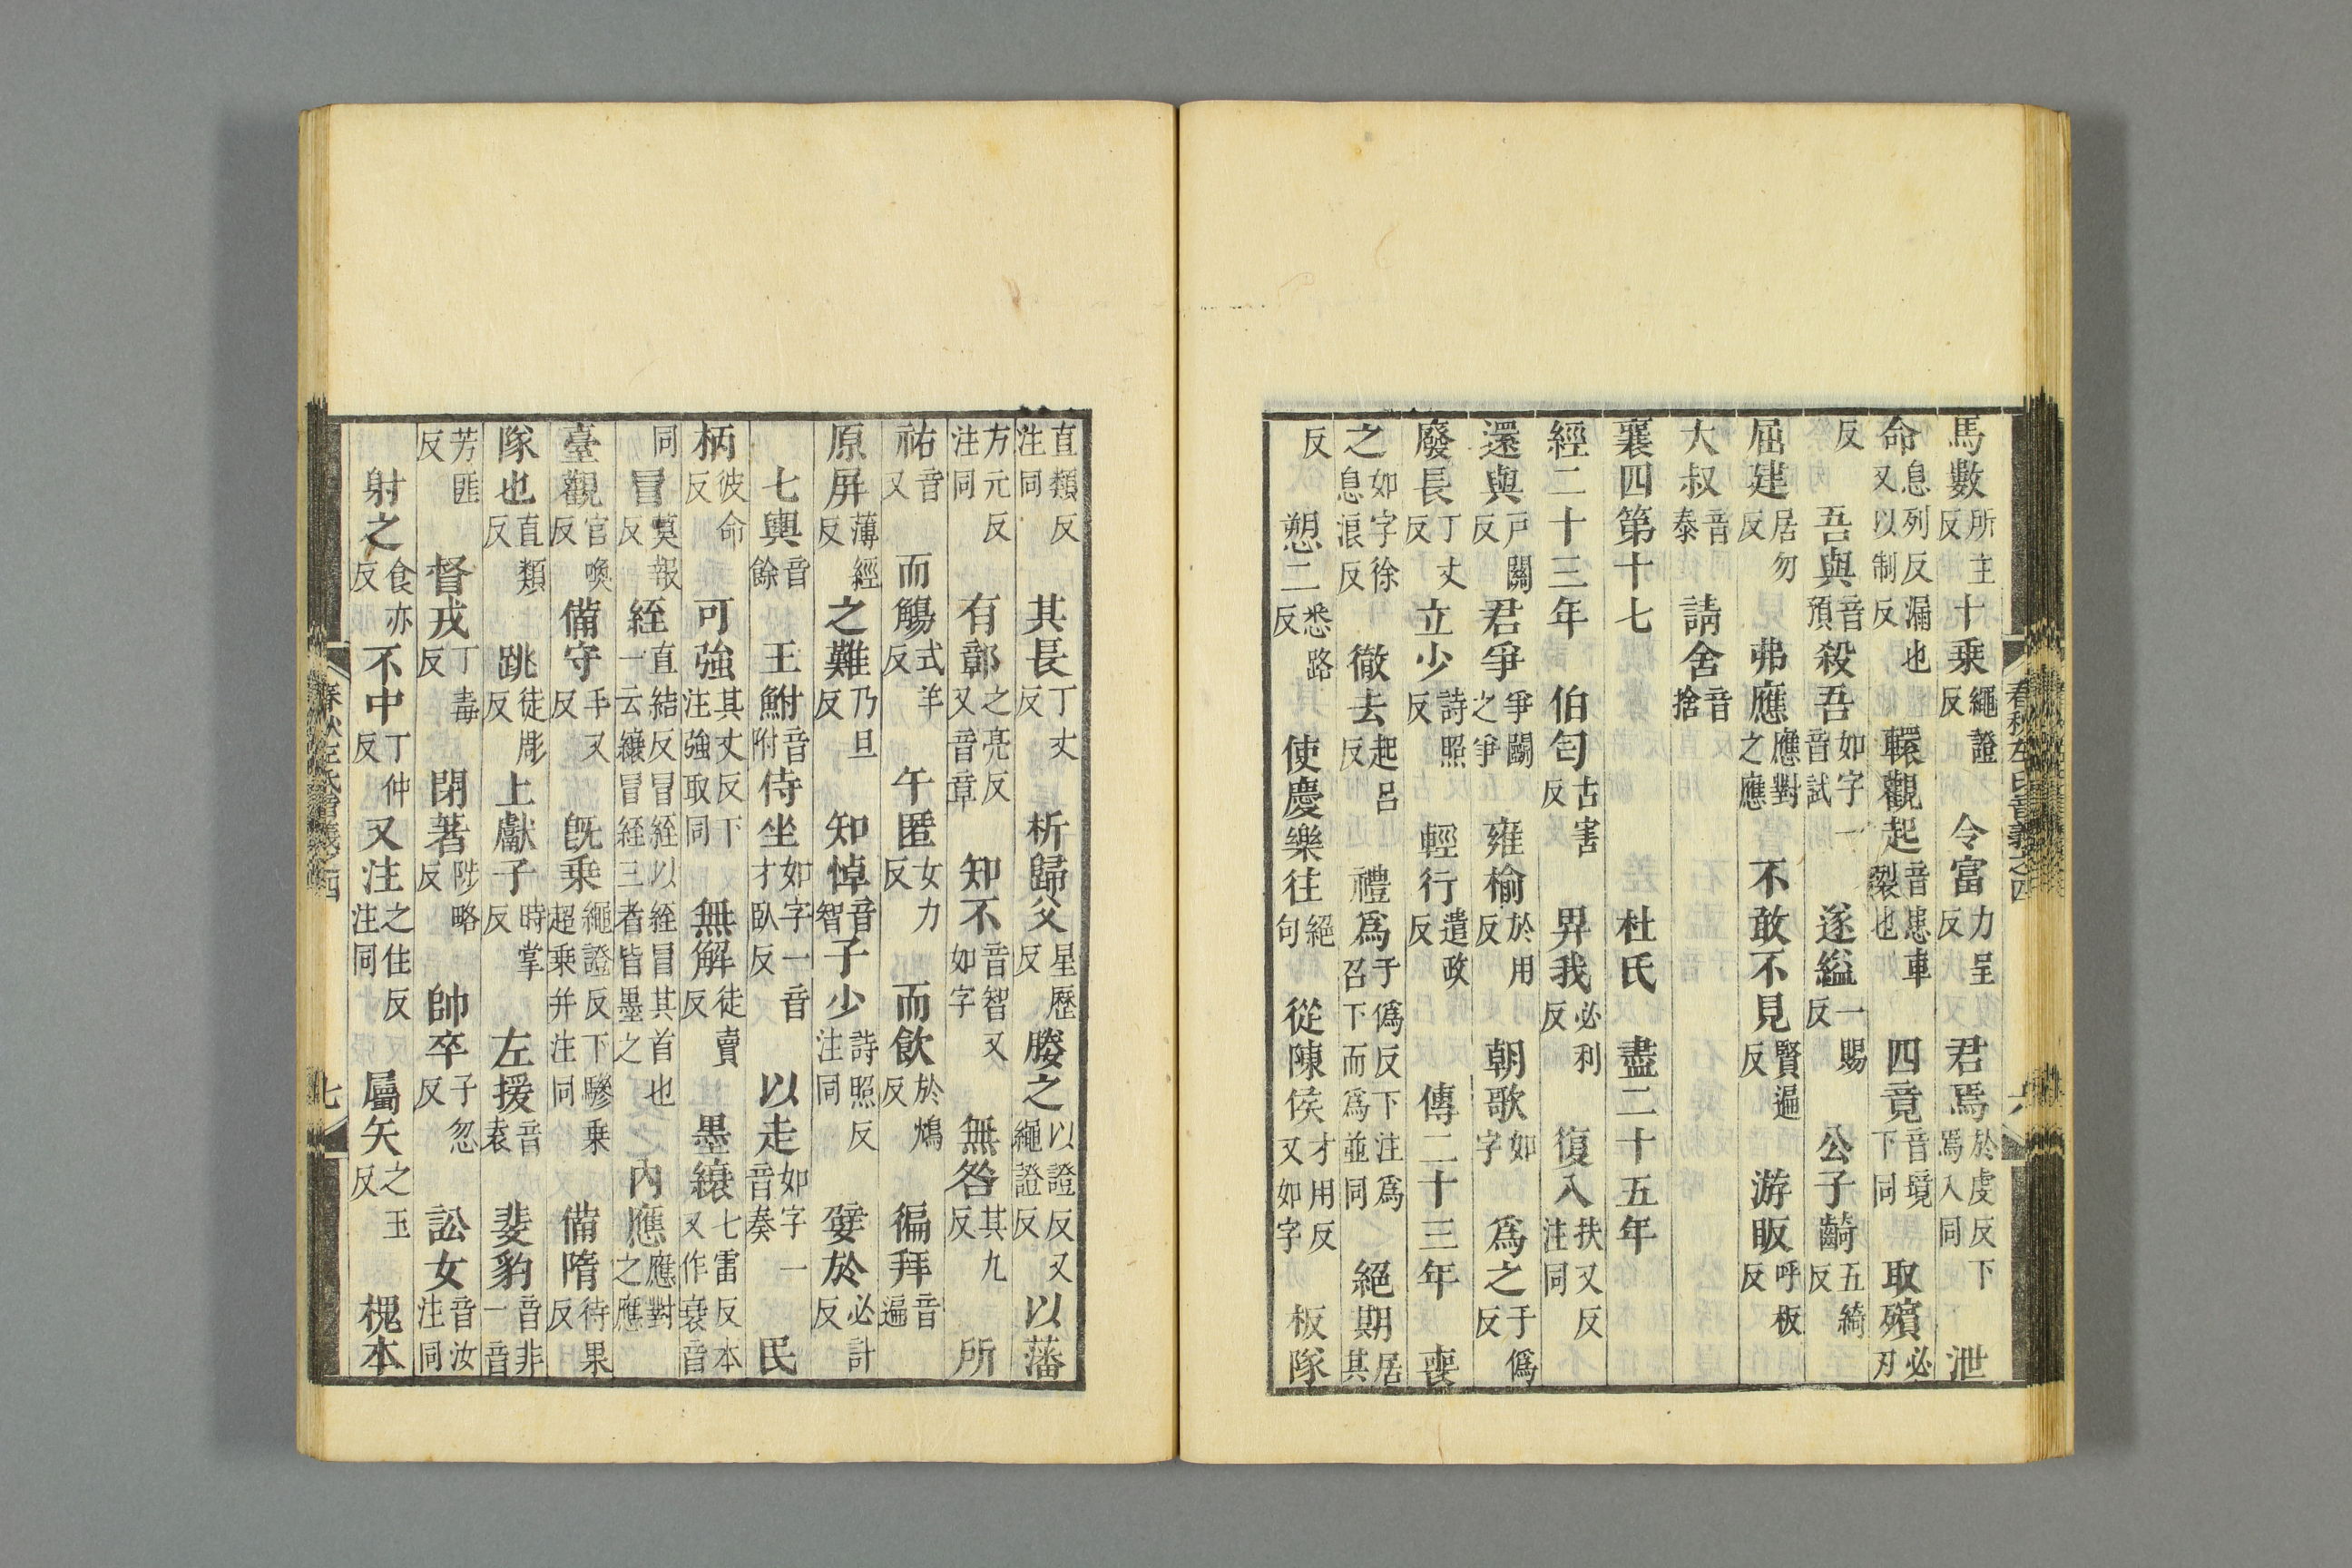 馬數所主反十乘繩證反令富力呈反君焉於虔反下焉入同泄
命息列反漏也又以制反轘觀起音患車裂也四竟音境下同取殯必刃
反吾與音預殺吾如字一音試遂縊一賜反公子齮五綺反
屈建居勿反弗應應對之應不敢不見賢遍反游眅呼板反
大叔音泰請舍音捨
襄四第十七杜氏盡二十五年
經二十三年伯匄古害反畀我必利反復入扶又反注同
還與戶關反君爭爭鬭之爭雍榆於用反朝歌如字爲之于僞反
廢長丁丈反立少詩照反輕行遣政反傳二十三年喪
之如字徐息浪反徹去起呂反禮爲于僞反下注爲召下而爲並同絕期居其
反愬二悉路反使慶樂往絕句從陳侯才用反又如字板隊
春秋左氏音義之四
六
直類反注同其長丁丈反析歸父星歷反媵之以證反又繩證反以藩
方元反注同有鄣之亮反又音章知不音智又如字無咎其九反所
祐音又而觴式羊反午匿女力反而飲於鴆反徧拜音遍
原屏薄經反之難乃旦反知悼音智子少詩照反注同嬖於必計反
七輿音餘王鮒音附侍坐如字一音才臥反以走如字一音奏民
柄彼命反可強其丈反下注強取同無解徒賣反墨縗七雷反本又作衰音
同冒莫報反絰直結反冒絰以絰冒其首也一云縗冒絰三者皆墨之內應應對之應
臺觀官喚反備守手又反旣乘繩證反下驂乘超乘并注同備隋待果反
隊也直類反跳徒彫反上獻子時掌反左援音袁斐豹音非一音
芳匪反督戎丁毒反閉著陟略反帥卒子忽反訟女音汝注同
射之食亦反不中丁仲反又注之住反注同屬矢之玉反槐本
春秋左氏音義之四
七